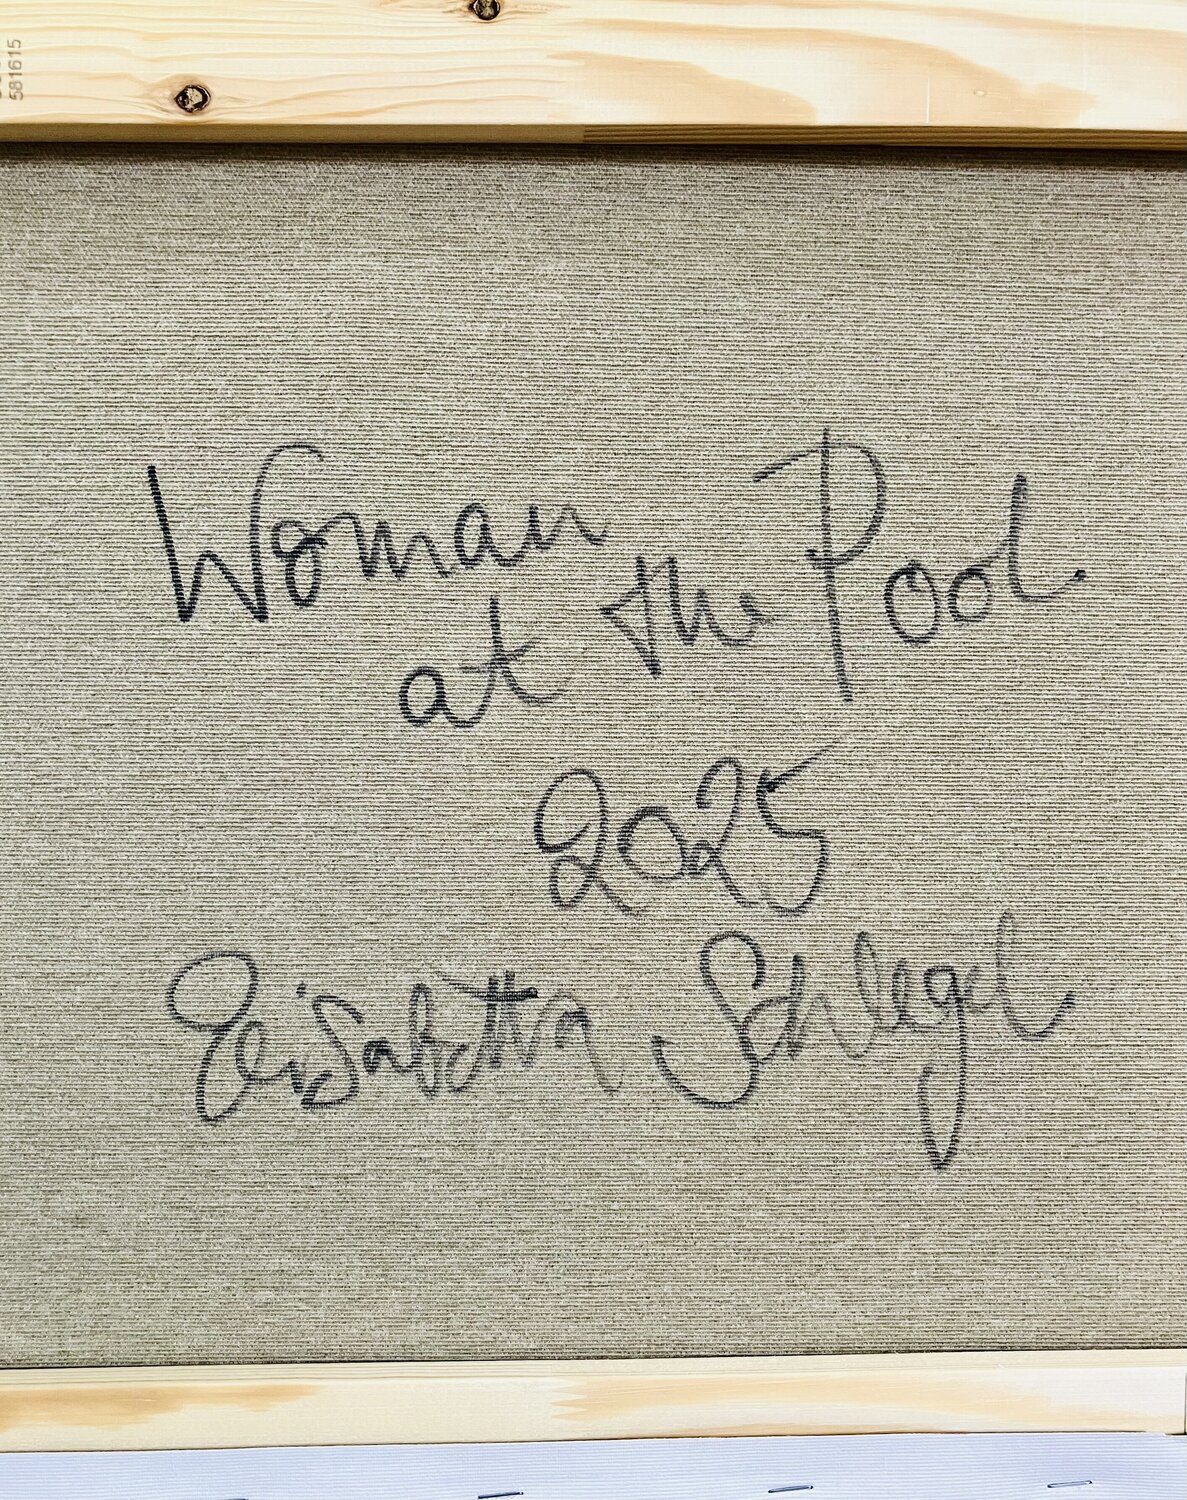 581615
Woman
at the Pool
2025
Elisabetta Schlegel